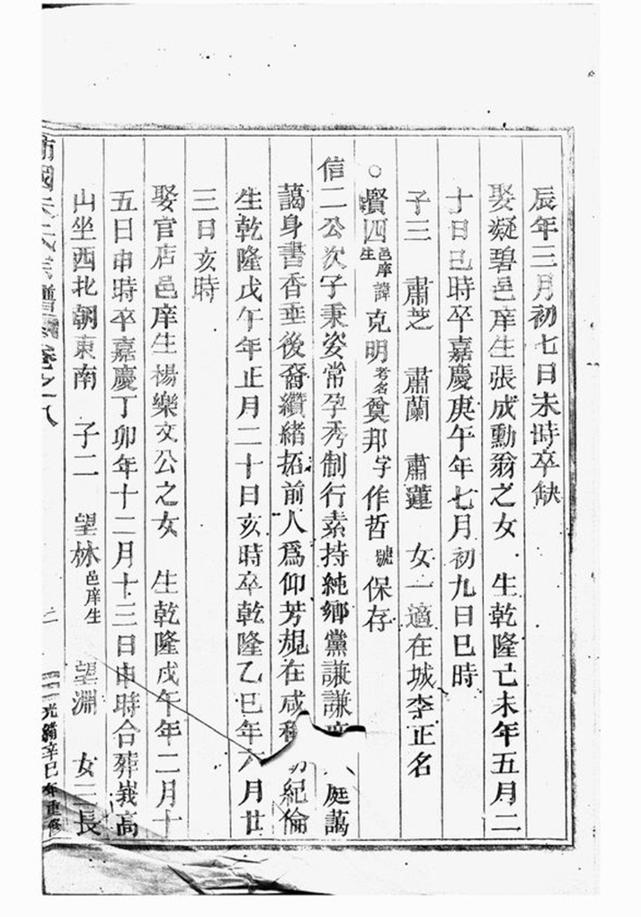 辰年三月初七日未時卒缺
娶凝碧邑庠生張成勳翁之女 生乾隆己未年五月二
十日巳時卒嘉慶庚午年七月初九日巳時
子三 肅芝 肅蘭 肅蓮 女一適在城李正名
○賢四邑庠生諱克明考名奠邦字作哲號保存
信二公次子秉姿常孕秀制行素持純鄉黨謙謙 庭藹
藹身書香垂後裔纘緒拓前人爲仰芳規在咸 紀倫
生乾隆戊午年正月二十日亥時卒乾隆乙巳年六月廿
三日亥時
娶官店邑庠生楊樂文公之女 生乾隆戊午年二月十
五日申時卒嘉慶丁卯年十二月十三日申時合葬峩高
山坐西北朝東南 子二 望林邑庠生 望淵 女三長
國 氏 譜 卷之八
光緒辛巳年重修